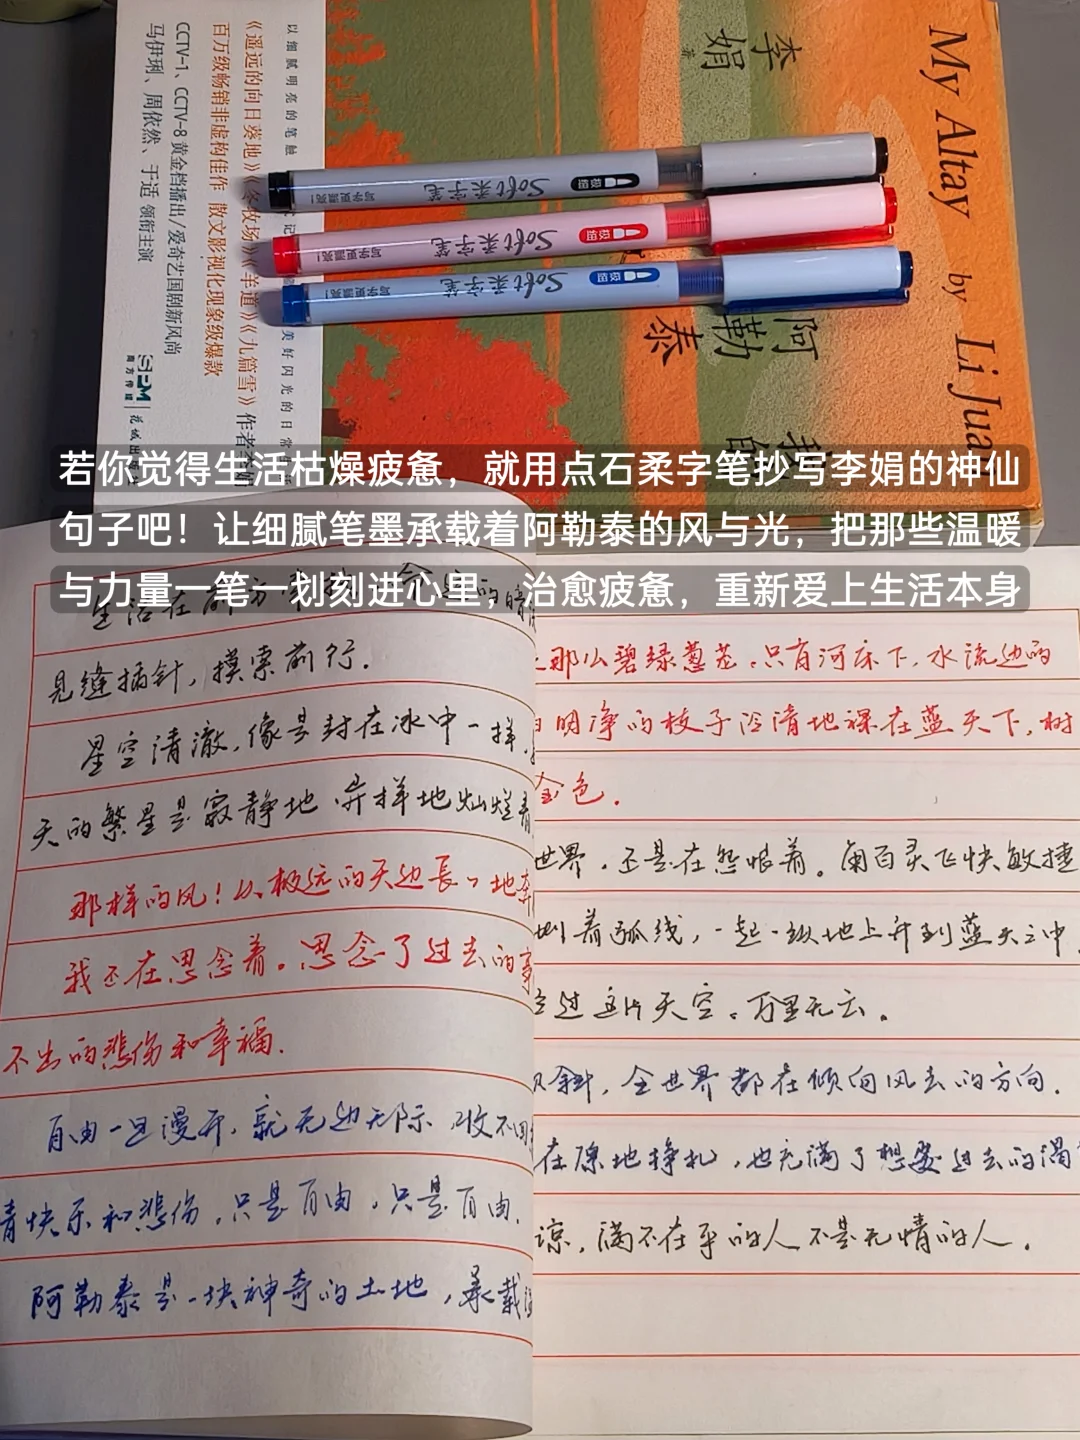 My Altay by Li Juan
李娟 著
阿勒
泰
以细腻明亮的笔触
美好闪光的日常
《遥远的向日葵地》《冬牧场》《羊道》《九篇雪》作者李娟
百万级畅销非虚构佳作 散文影视化现象级爆款
CCTV-1、CCTV-8黄金档播出/爱奇艺国剧新风尚
马伊琍、周依然、于适 领衔主演
SPM
南方传媒
花城出版
Soft柔字笔 极细
Soft柔字笔 极细
Soft柔字笔 极细
若你觉得生活枯燥疲惫，就用点石柔字笔抄写李娟的神仙
句子吧！让细腻笔墨承载着阿勒泰的风与光，把那些温暖
与力量一笔一划刻进心里，治愈疲惫，重新爱上生活本身
生活在前方
见缝插针，摸索前行.
星空清澈，像是封在冰中一样，
天的繁星是寂静地 异样地灿烂着
那样的风！从极远的天边长长地奔
我还在思念着。思念了过去的事
不出的悲伤和幸福.
自由一旦漫开，就无边无际，收不回
着快乐和悲伤，只是自由，只是自由.
阿勒泰是一块神奇的土地，承载
那么碧绿葱茏，只有河床下，水流边的
明净的枝子泠清地裸在蓝天下，树
金色.
世界，还是在怨恨着。
划着弧线，一起一纵地上升到蓝天之中，
过这片天空，万里无云。
斜，全世界都在倾向风去的方向.
在原地挣扎，也充满了想要过去的渴
谅，满不在乎的人不是无情的人.